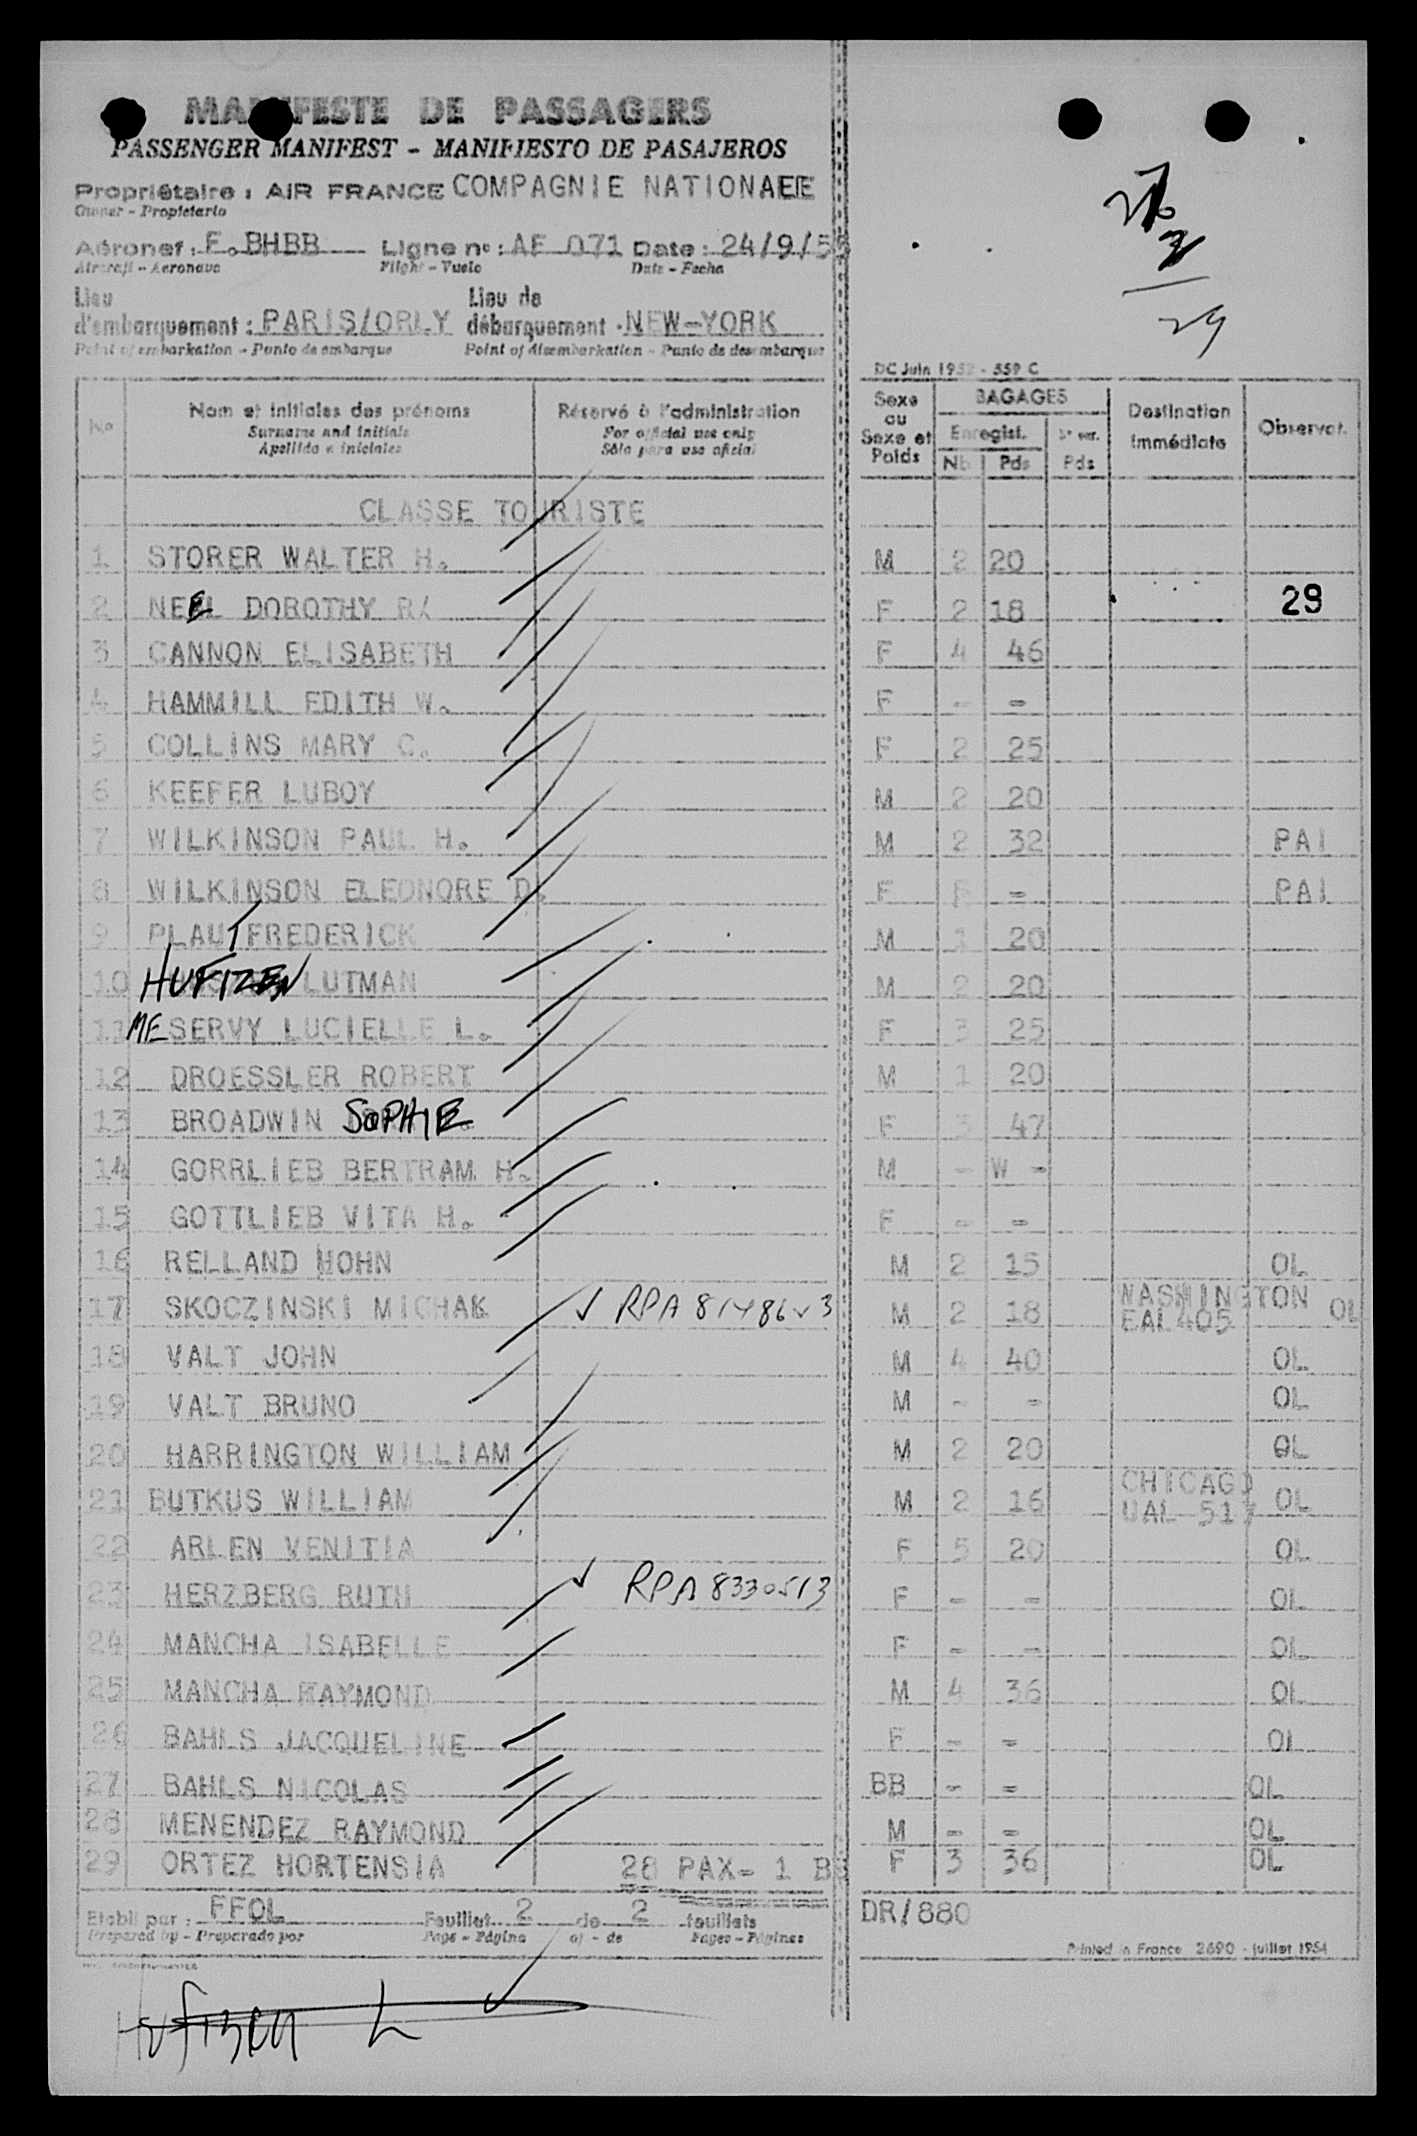 MANIFESTE DE PASSAGERS
PASSENGER MANIFEST - MANIFIESTO DE PASAJEROS
Propriétaire : AIR FRANCE COMPAGNIE NATIONAEE
Owner - Propietario
Aéronef : F.BHBB Ligne n° : AF 071 Date : 24/9/55
Aircraft - Aeronave Flight - Vuelo Date - Fecha
Lieu d'embarquement : PARIS/ORLY Lieu de débarquement : NEW-YORK
Point of embarkation - Punto de embarque Point of disembarkation - Punto de desembarque
29
DC Juin 1952 - 559 C
No Nom et initiales des prénoms Réservé à l'administration Sexe ou Sexe et Poids BAGAGES Destination immédiate Observat.
Surname and initials For official use only Enregist.
Apellido e iniciales Sólo para uso oficial Nb Pds Pds
CLASSE TOURISTE
1 STORER WALTER H. M 2 20
2 NEEL DOROTHY R. F 2 18 29
3 CANNON ELISABETH F 4 46
4 HAMMILL EDITH W. F - -
5 COLLINS MARY C. F 2 25
6 KEEFER LUBOY M 2 20
7 WILKINSON PAUL H. M 2 32 PAI
8 WILKINSON ELEONORE D. F - PAI
9 PLAUT FREDERICK M 1 20
10 HUFIZEN LUTMAN M 2 20
11 MESERVY LUCIELLE L. F 3 25
12 DROESSLER ROBERT M 1 20
13 BROADWIN SOPHIE F 3 47
14 GORRLIEB BERTRAM H. M - W -
15 GOTTLIEB VITA H. F - -
16 RELLAND HOHN M 2 15 OL
17 SKOCZINSKI MICHAK ✓ RPA M 2 18 WASHINGTON EAL 405 OL
18 VALT JOHN M 4 40 OL
19 VALT BRUNO M - - OL
20 HARRINGTON WILLIAM M 2 20 OL
21 BUTKUS WILLIAM M 2 16 CHICAGO UAL 517 OL
22 ARLEN VENITIA F 5 20 OL
23 HERZBERG RUTH ✓ RPA 8330513 F - - OL
24 MANCHA ISABELLE F - - OL
25 MANCHA RAYMOND M 4 36 OL
26 BAHLS JACQUELINE F - - OL
27 BAHLS NICOLAS BB - - OL
28 MENENDEZ RAYMOND M - - OL
29 ORTEZ HORTENSIA 28 PAX- 1 BB F 3 36 OL
Etabli par : FFOL Feuillet 2 de 2 feuillets DR/880
Prepared by - Preparado por Page - Página of - de Pages - Páginas
Printed in France 2690 - juillet 1954
Hufizen L